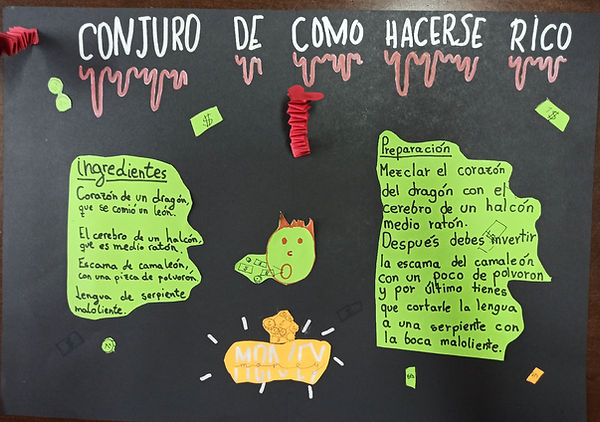 CONJURO DE COMO HACERSE RICO
$
1$
ingredientes
Corazón de un dragón,
que se comió un león.
El cerebro de un halcón,
que es medio ratón.
Escama de camaleón,
con una pizca de polvoron
Lengua de serpiente
maloliente.
Preparación
Mezclar el corazón
del dragón con el
cerebro de un halcón
medio ratón.
Después debes invertir
la escama del camaleón
con un poco de polvoron
y por último tienes
que cortarle la lengua
a una serpiente con
la boca maloliente.
MONEY
money